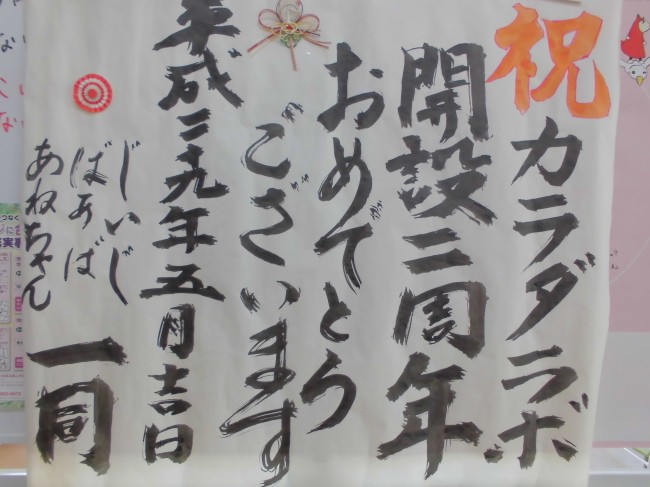 祝
カラダラボ
開設二周年
おめでとう
ございます
平成二九年五月吉日
じいじ
ばぁば
あねちゃん
一同